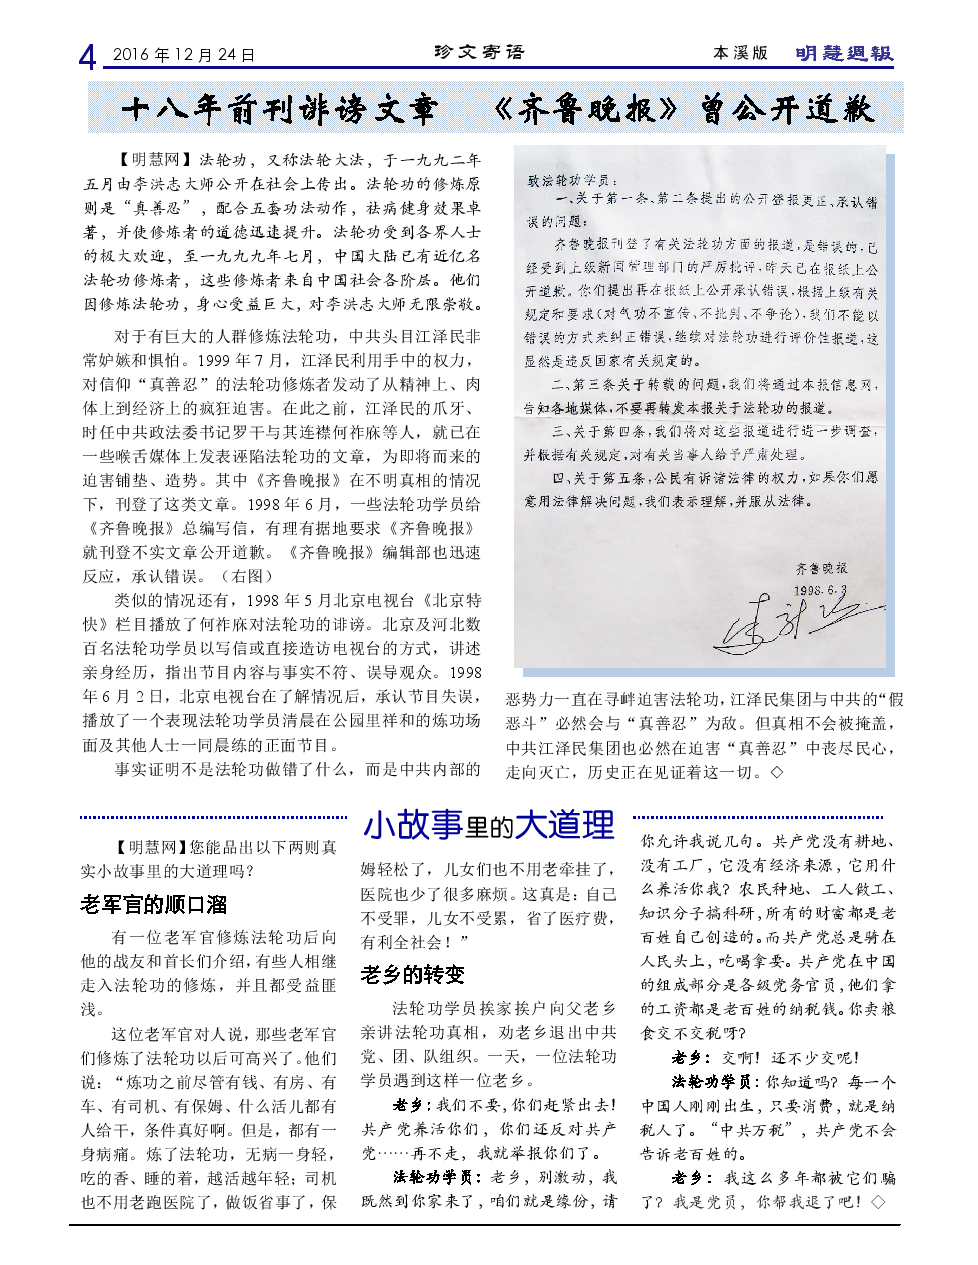 4 2016 年 12 月 24 日 珍文寄语 本溪版 明慧週報
十八年前刊诽谤文章 《齐鲁晚报》曾公开道歉
【明慧网】法轮功，又称法轮大法，于一九九二年
五月由李洪志大师公开在社会上传出。法轮功的修炼原
则是“真善忍”，配合五套功法动作，祛病健身效果卓
著，并使修炼者的道德迅速提升。法轮功受到各界人士
的极大欢迎，至一九九九年七月，中国大陆已有近亿名
法轮功修炼者，这些修炼者来自中国社会各阶层。他们
因修炼法轮功，身心受益巨大，对李洪志大师无限崇敬。
对于有巨大的人群修炼法轮功，中共头目江泽民非
常妒嫉和惧怕。1999 年 7 月，江泽民利用手中的权力，
对信仰“真善忍”的法轮功修炼者发动了从精神上、肉
体上到经济上的疯狂迫害。在此之前，江泽民的爪牙、
时任中共政法委书记罗干与其连襟何祚庥等人，就已在
一些喉舌媒体上发表诬陷法轮功的文章，为即将而来的
迫害铺垫、造势。其中《齐鲁晚报》在不明真相的情况
下，刊登了这类文章。1998 年 6 月，一些法轮功学员给
《齐鲁晚报》总编写信，有理有据地要求《齐鲁晚报》
就刊登不实文章公开道歉。《齐鲁晚报》编辑部也迅速
反应，承认错误。（右图）
类似的情况还有，1998 年 5 月北京电视台《北京特
快》栏目播放了何祚庥对法轮功的诽谤。北京及河北数
百名法轮功学员以写信或直接造访电视台的方式，讲述
亲身经历，指出节目内容与事实不符、误导观众。1998
年 6 月 2 日，北京电视台在了解情况后，承认节目失误，
播放了一个表现法轮功学员清晨在公园里祥和的炼功场
面及其他人士一同晨练的正面节目。
事实证明不是法轮功做错了什么，而是中共内部的
致法轮功学员：
一、关于第一条、第二条提出的公开登报更正、承认错
误的问题：
齐鲁晚报刊登了有关法轮功方面的报道，是错误的，已
经受到上级新闻管理部门的严厉批评，昨天已在报纸上公
开道歉。你们提出再在报纸上公开承认错误，根据上级有关
规定和要求(对气功不宣传、不批判、不争论)，我们不能以
错误的方式来纠正错误，继续对法轮功进行评价性报道，这
显然是违反国家有关规定的。
二、第三条关于转载的问题，我们将通过本报信息网，
告知各地媒体，不要再转发本报关于法轮功的报道。
三、关于第四条，我们将对这些报道进行进一步调查，
并根据有关规定，对有关当事人给予严肃处理。
四、关于第五条，公民有诉诸法律的权力，如果你们愿
意用法律解决问题，我们表示理解，并服从法律。
齐鲁晚报
1998.6.3
恶势力一直在寻衅迫害法轮功，江泽民集团与中共的“假
恶斗”必然会与“真善忍”为敌。但真相不会被掩盖，
中共江泽民集团也必然在迫害“真善忍”中丧尽民心，
走向灭亡，历史正在见证着这一切。◇
小故事里的大道理
【明慧网】您能品出以下两则真
实小故事里的大道理吗？
老军官的顺口溜
有一位老军官修炼法轮功后向
他的战友和首长们介绍，有些人相继
走入法轮功的修炼，并且都受益匪
浅。
这位老军官对人说，那些老军官
们修炼了法轮功以后可高兴了。他们
说：“炼功之前尽管有钱、有房、有
车、有司机、有保姆、什么活儿都有
人给干，条件真好啊。但是，都有一
身病痛。炼了法轮功，无病一身轻，
吃的香、睡的着，越活越年轻；司机
也不用老跑医院了，做饭省事了，保
姆轻松了，儿女们也不用老牵挂了，
医院也少了很多麻烦。这真是：自己
不受罪，儿女不受累，省了医疗费，
有利全社会！”
老乡的转变
法轮功学员挨家挨户向父老乡
亲讲法轮功真相，劝老乡退出中共
党、团、队组织。一天，一位法轮功
学员遇到这样一位老乡。
老乡：我们不要，你们赶紧出去！
共产党养活你们，你们还反对共产
党……再不走，我就举报你们了。
法轮功学员：老乡，别激动，我
既然到你家来了，咱们就是缘份，请
你允许我说几句。共产党没有耕地、
没有工厂，它没有经济来源，它用什
么养活你我？农民种地、工人做工、
知识分子搞科研，所有的财富都是老
百姓自己创造的。而共产党总是骑在
人民头上，吃喝拿要。共产党在中国
的组成部分是各级党务官员，他们拿
的工资都是老百姓的纳税钱。你卖粮
食交不交税呀？
老乡：交啊！还不少交呢！
法轮功学员：你知道吗？每一个
中国人刚刚出生，只要消费，就是纳
税人了。“中共万税”，共产党不会
告诉老百姓的。
老乡：我这么多年都被它们骗
了？我是党员，你帮我退了吧！◇